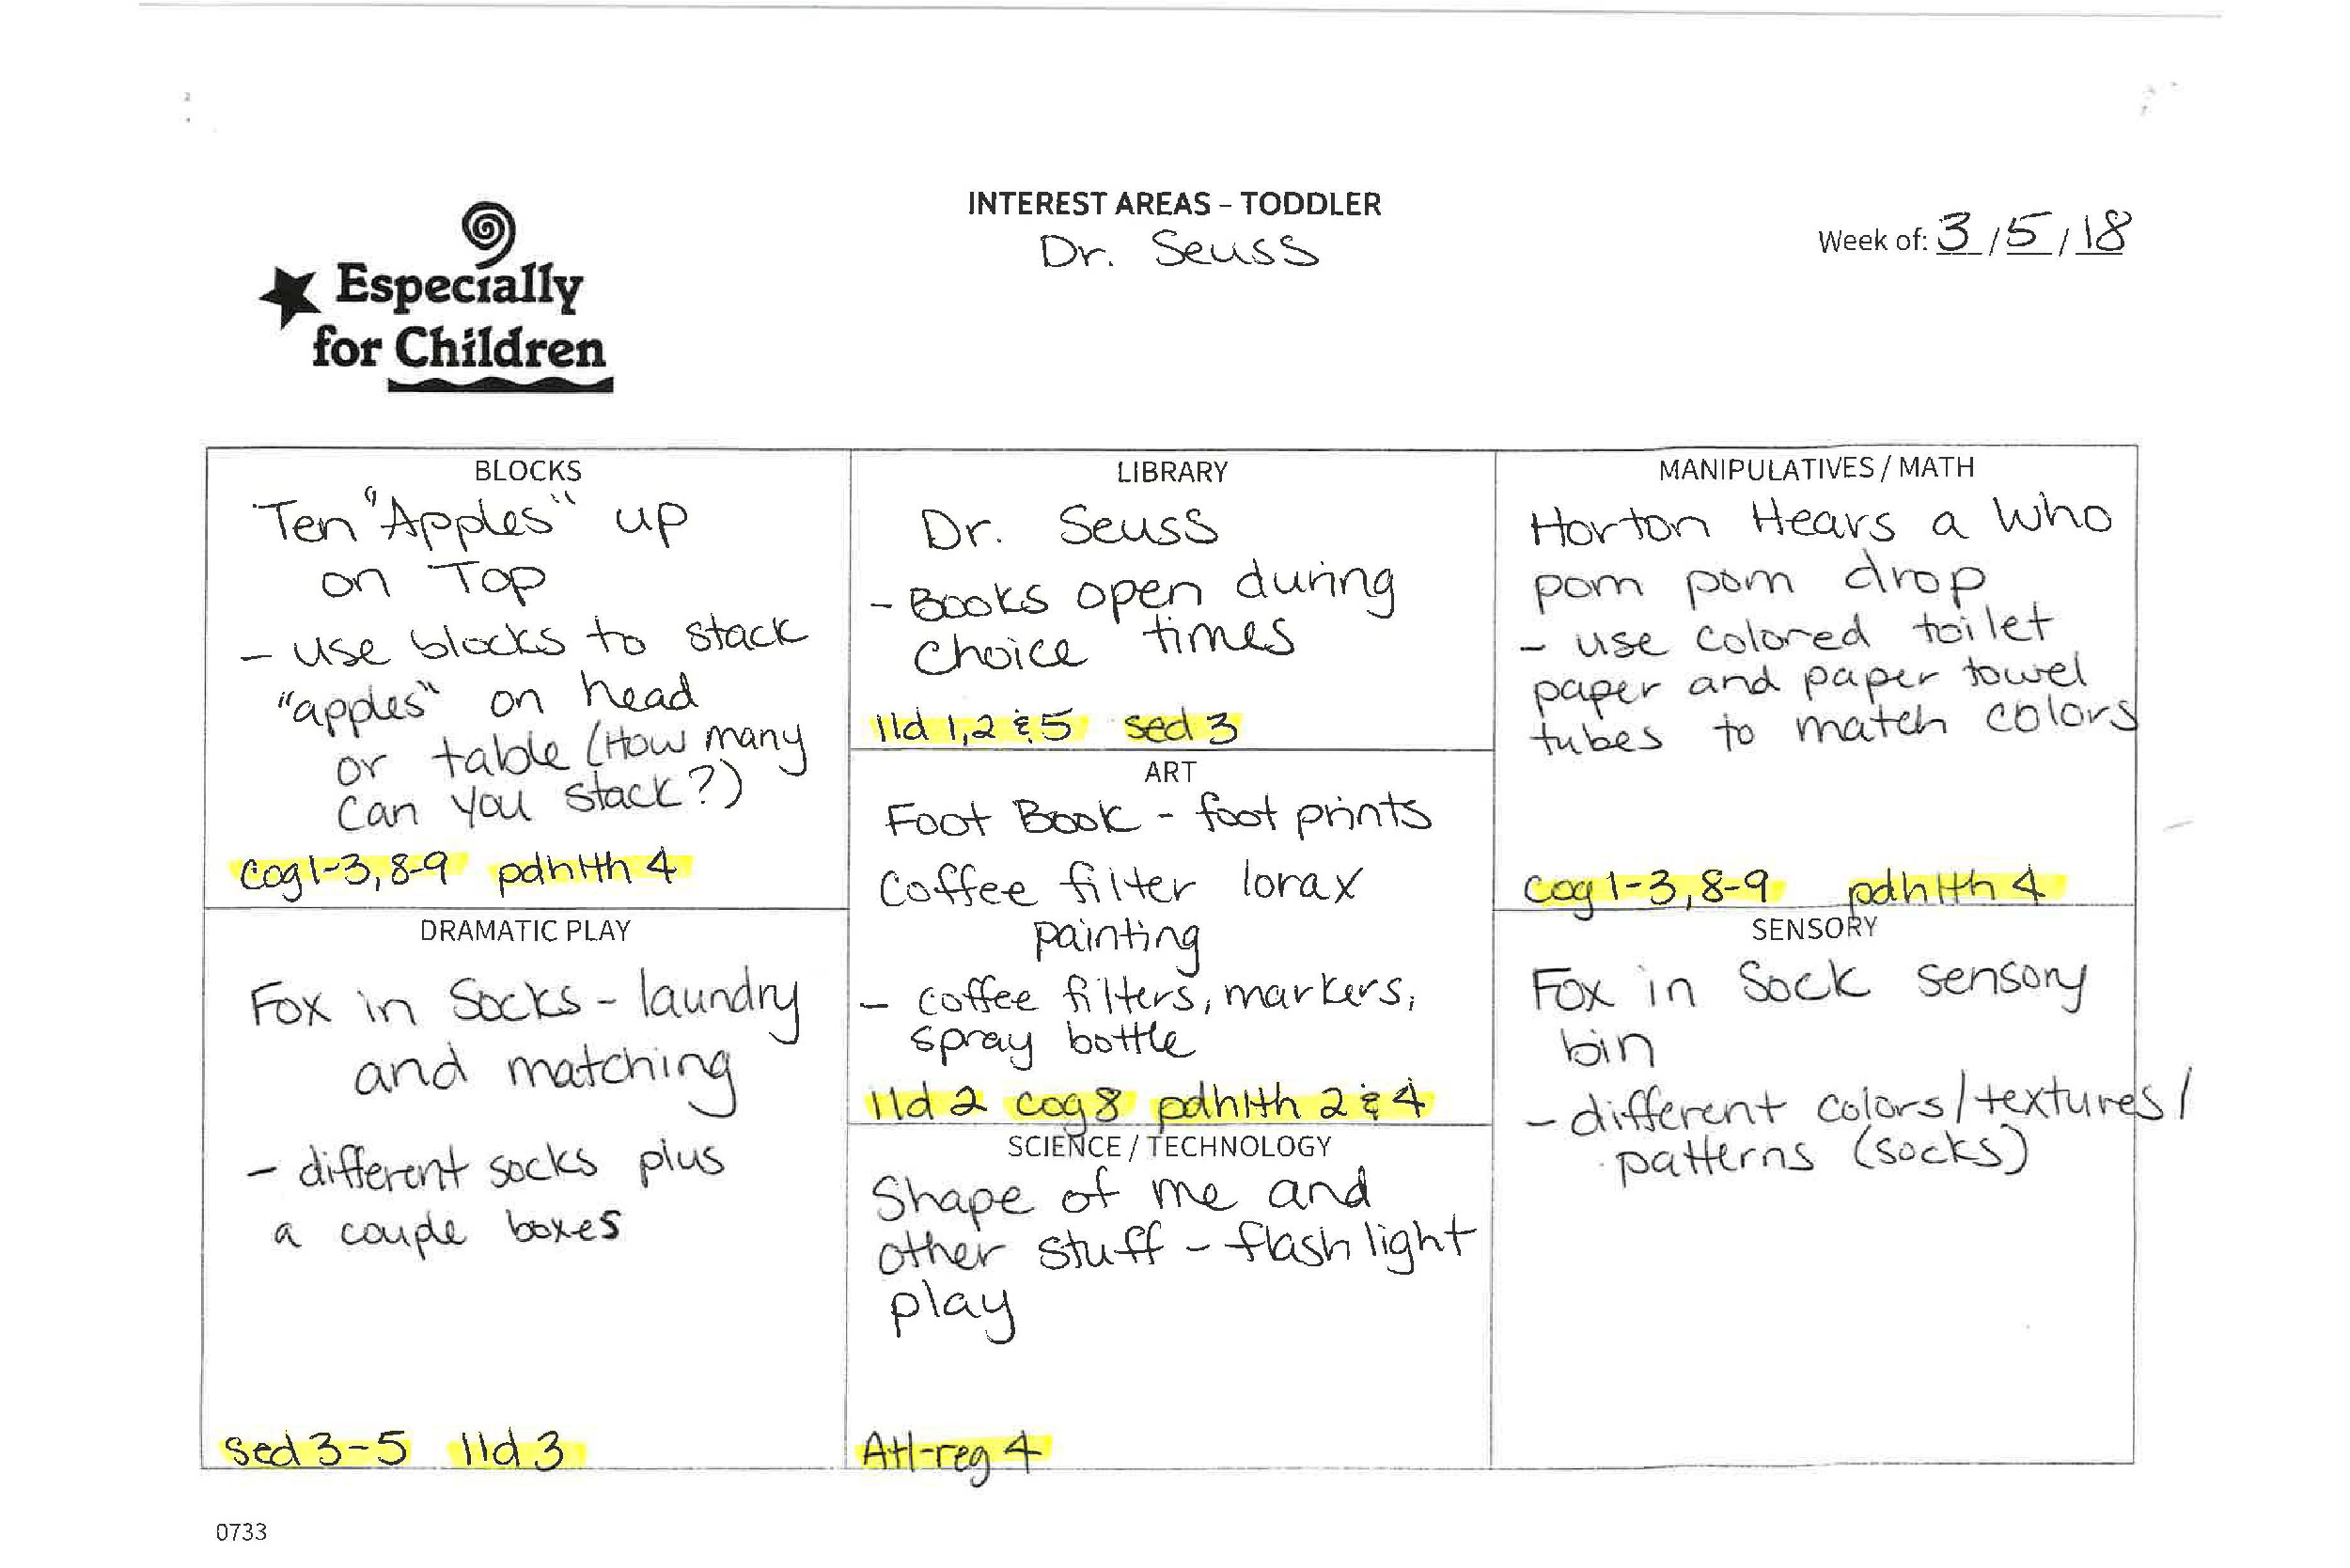 INTEREST AREAS – TODDLER
Dr. Seuss
Week of: 3/5/18
Especially
for Children
BLOCKS
Ten "Apples" up
on Top
- use blocks to stack
"apples" on head
or table (How many
can you stack?)
cog 1-3, 8-9 pdhlth 4
LIBRARY
Dr. Seuss
- Books open during
choice times
lld 1,2 & 5 sed 3
MANIPULATIVES / MATH
Horton Hears a Who
pom pom drop
- use colored toilet
paper and paper towel
tubes to match colors
cog 1-3, 8-9 pdhlth 4
ART
Foot Book - foot prints
Coffee filter lorax
painting
- coffee filters, markers,
spray bottle
lld 2 cog 8 pdhlth 2 & 4
DRAMATIC PLAY
Fox in Socks - laundry
and matching
- different socks plus
a couple boxes
sed 3-5 lld 3
SCIENCE / TECHNOLOGY
Shape of me and
other stuff - flash light
play
Atl-reg 4
SENSORY
Fox in Sock sensory
bin
- different colors/textures/
patterns (socks)
0733